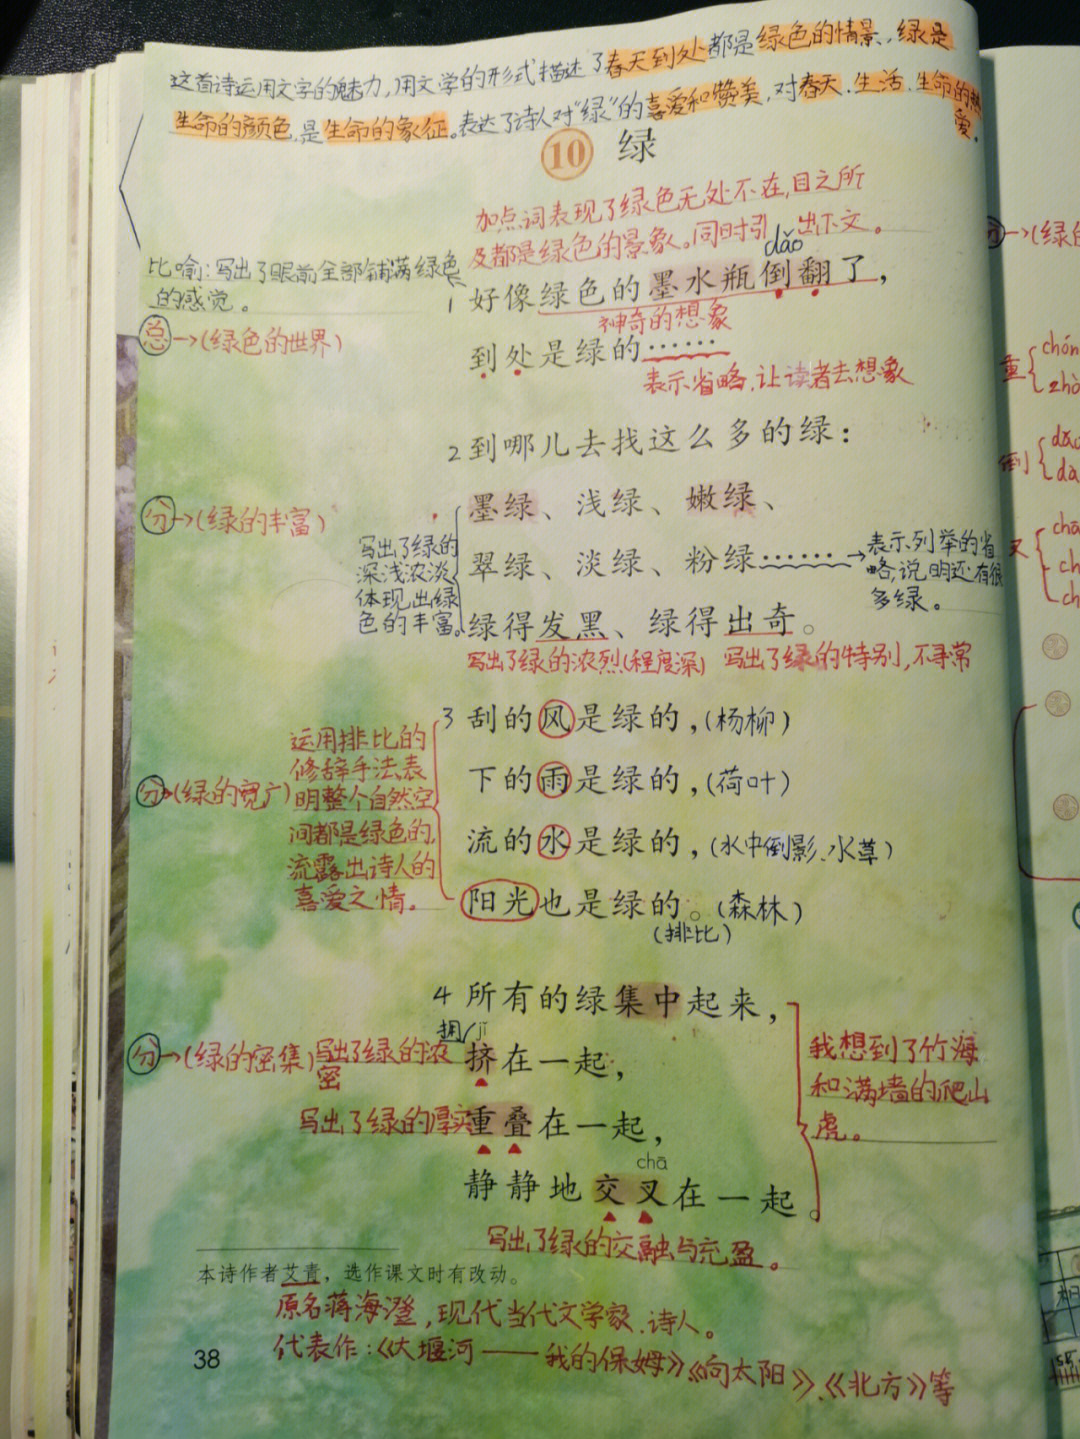 这首诗运用文字的魅力,用文学的形式描述了春天到处都是绿色的情景,绿是
生命的颜色,是生命的象征。表达了诗人对“绿”的喜爱和赞美,对春天、生活、生命的热
爱。
10 绿
加点词表现了绿色无处不在,目之所
及都是绿色的景象。同时引出下文。
dǎo
比喻:写出了眼前全部铺满绿色
的感觉。
1 好像绿色的墨水瓶倒翻了,
神奇的想象
总→(绿色的世界)
到处是绿的……
表示省略,让读者去想象
2 到哪儿去找这么多的绿:
分→(绿的丰富)
墨绿、浅绿、嫩绿、
写出了绿的
深浅浓淡
体现出绿
色的丰富。
翠绿、淡绿、粉绿……
→表示列举的省
略,说明还有很
多绿。
绿得发黑、绿得出奇。
写出了绿的浓烈(程度深) 写出了绿的特别,不寻常
3 刮的风是绿的,(杨柳)
运用排比的
修辞手法,表
明整个自然空
间都是绿色的,
流露出诗人的
喜爱之情。
分→(绿的宽广)
下的雨是绿的,(荷叶)
流的水是绿的,(水中倒影、水草)
阳光也是绿的。(森林)
(排比)
4 所有的绿集中起来,
拥 jǐ
分→(绿的密集)写出了绿的浓
密
挤在一起,
我想到了竹海
和满墙的爬山
虎。
写出了绿的厚实
重叠在一起,
chā
静静地交叉在一起。
写出了绿的交融与充盈。
本诗作者艾青,选作课文时有改动。
原名蒋海澄,现代当代文学家、诗人。
代表作:《大堰河——我的保姆》《向太阳》、《北方》等
38
分→(绿的
重
倒
叉